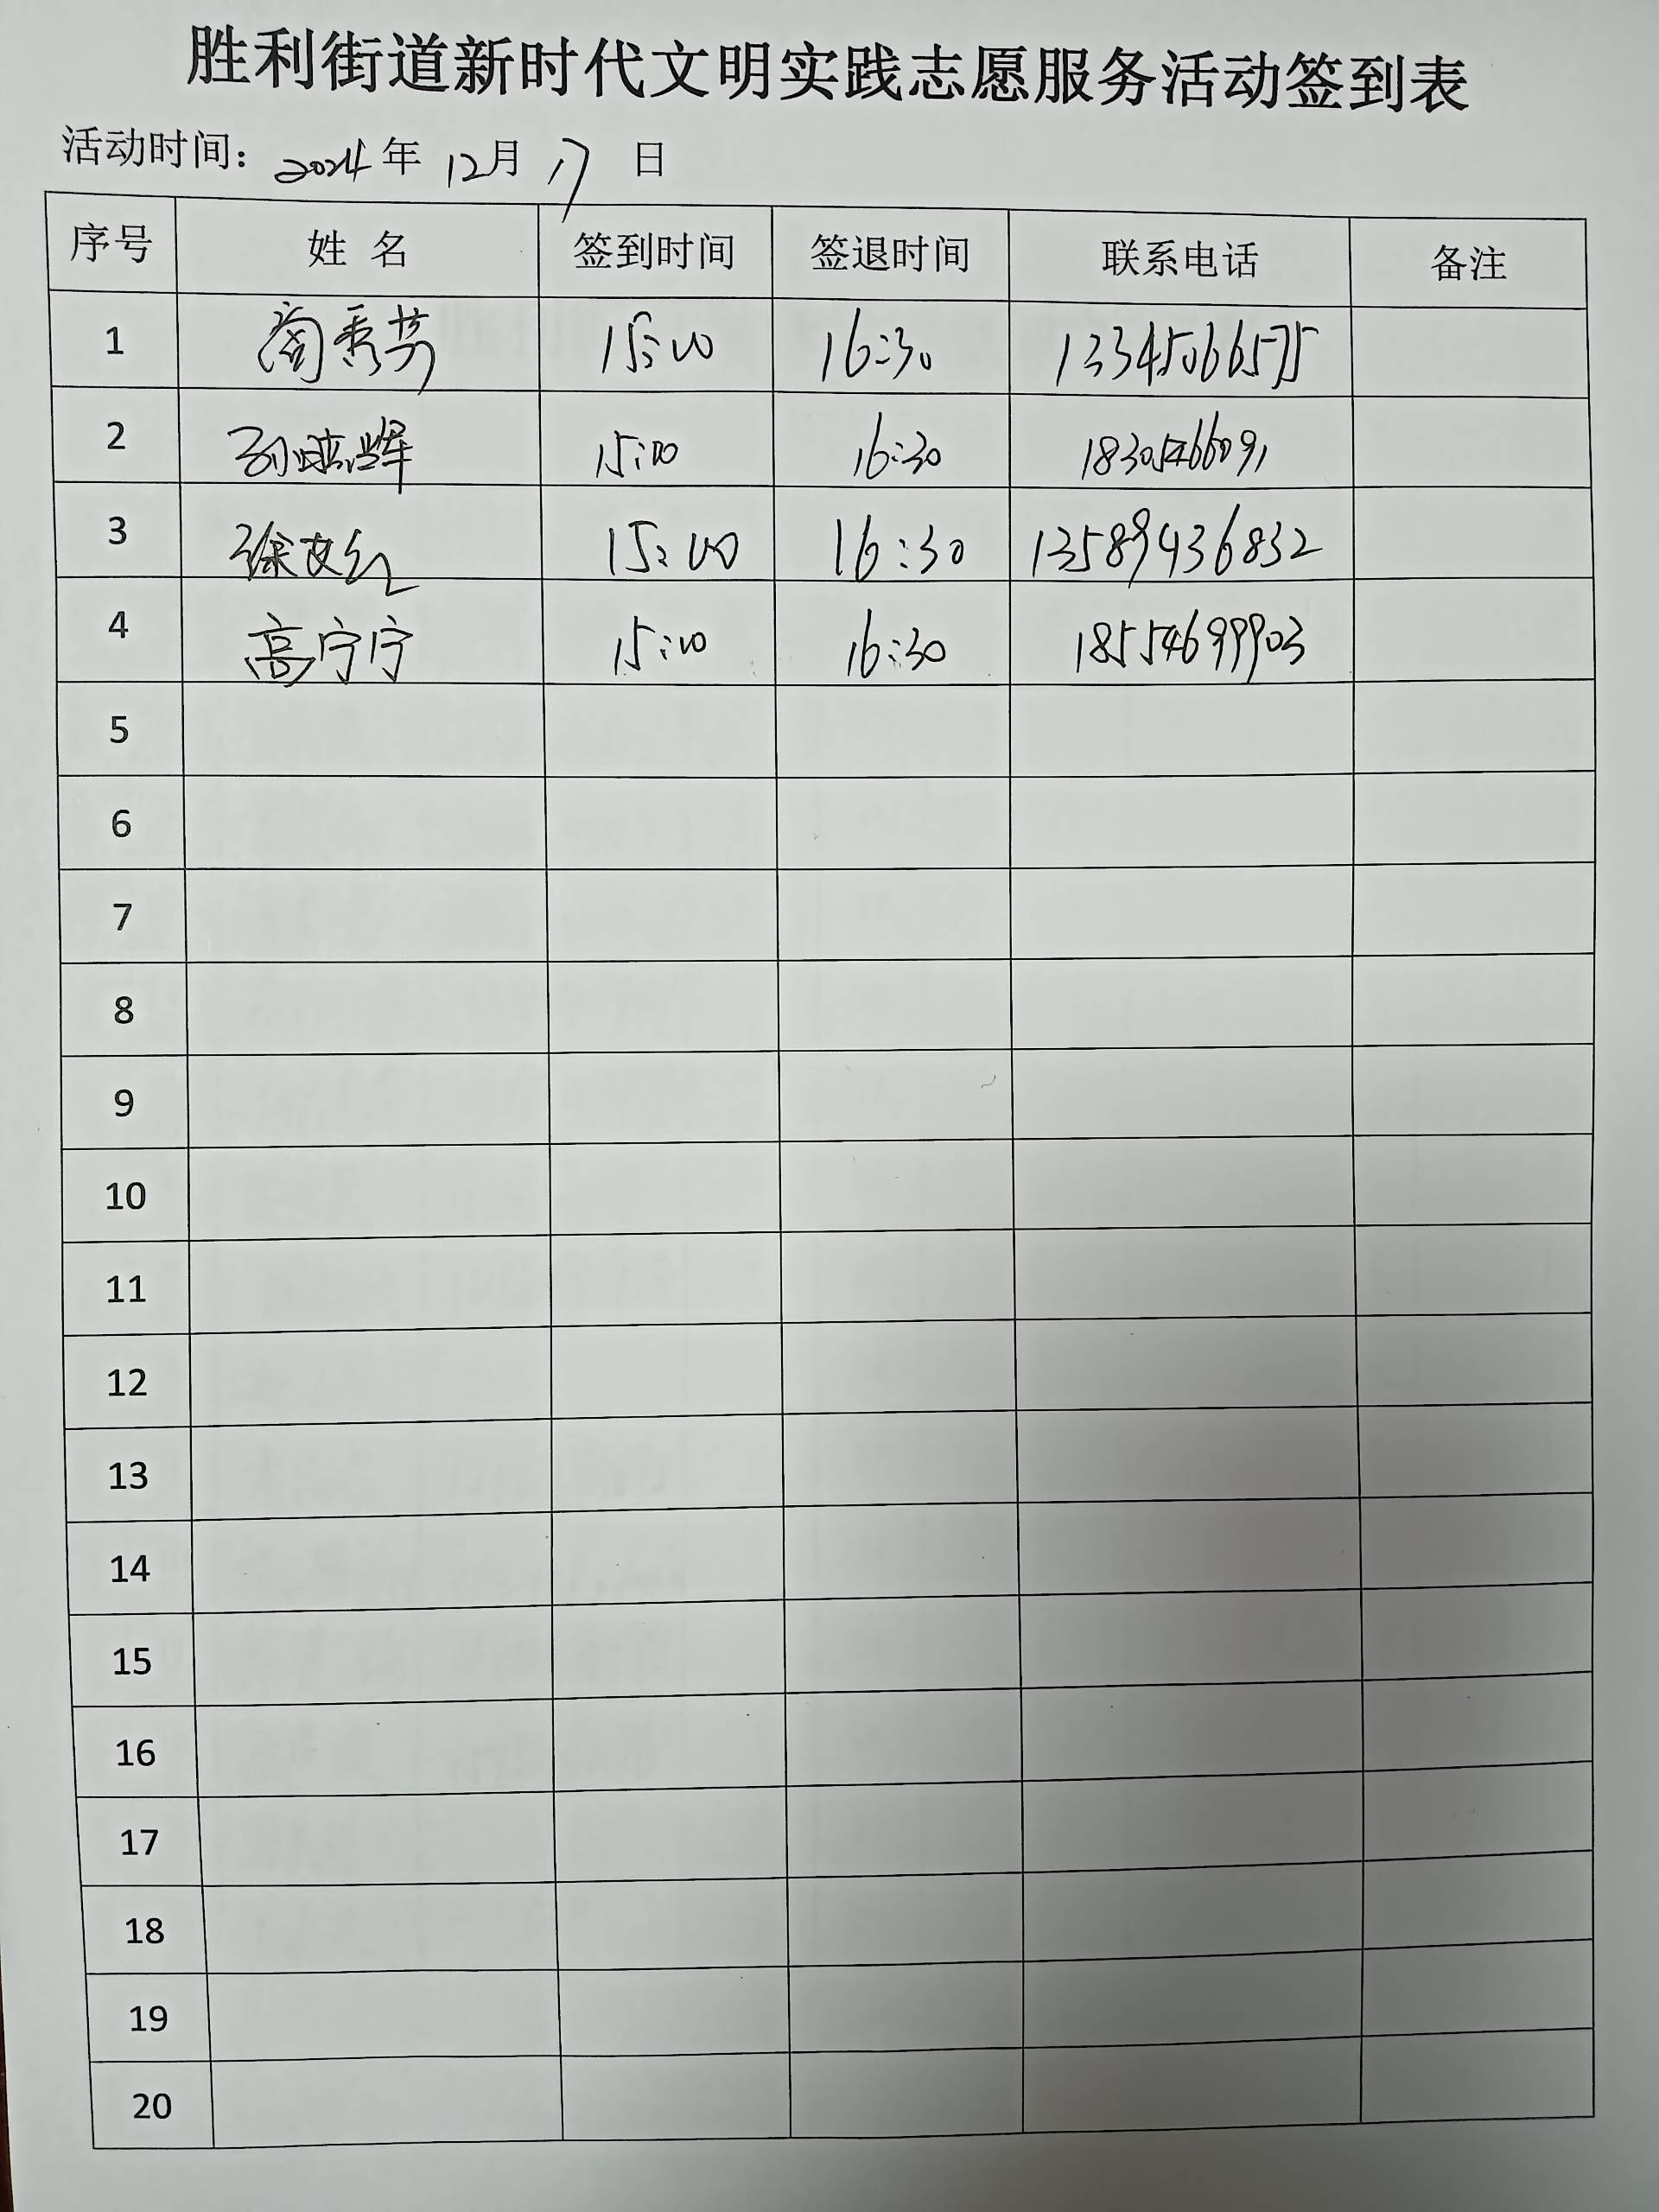 胜利街道新时代文明实践志愿服务活动签到表
活动时间：2024年 12月 17 日
序号 姓 名 签到时间 签退时间 联系电话 备注
1 秀芳 15:00 16:30 13345066575
2 孙 15:00 16:30 18305466091
3 徐文红 15:00 16:30 13589436832
4 高宁宁 15:00 16:30 18554699903
5
6
7
8
9
10
11
12
13
14
15
16
17
18
19
20